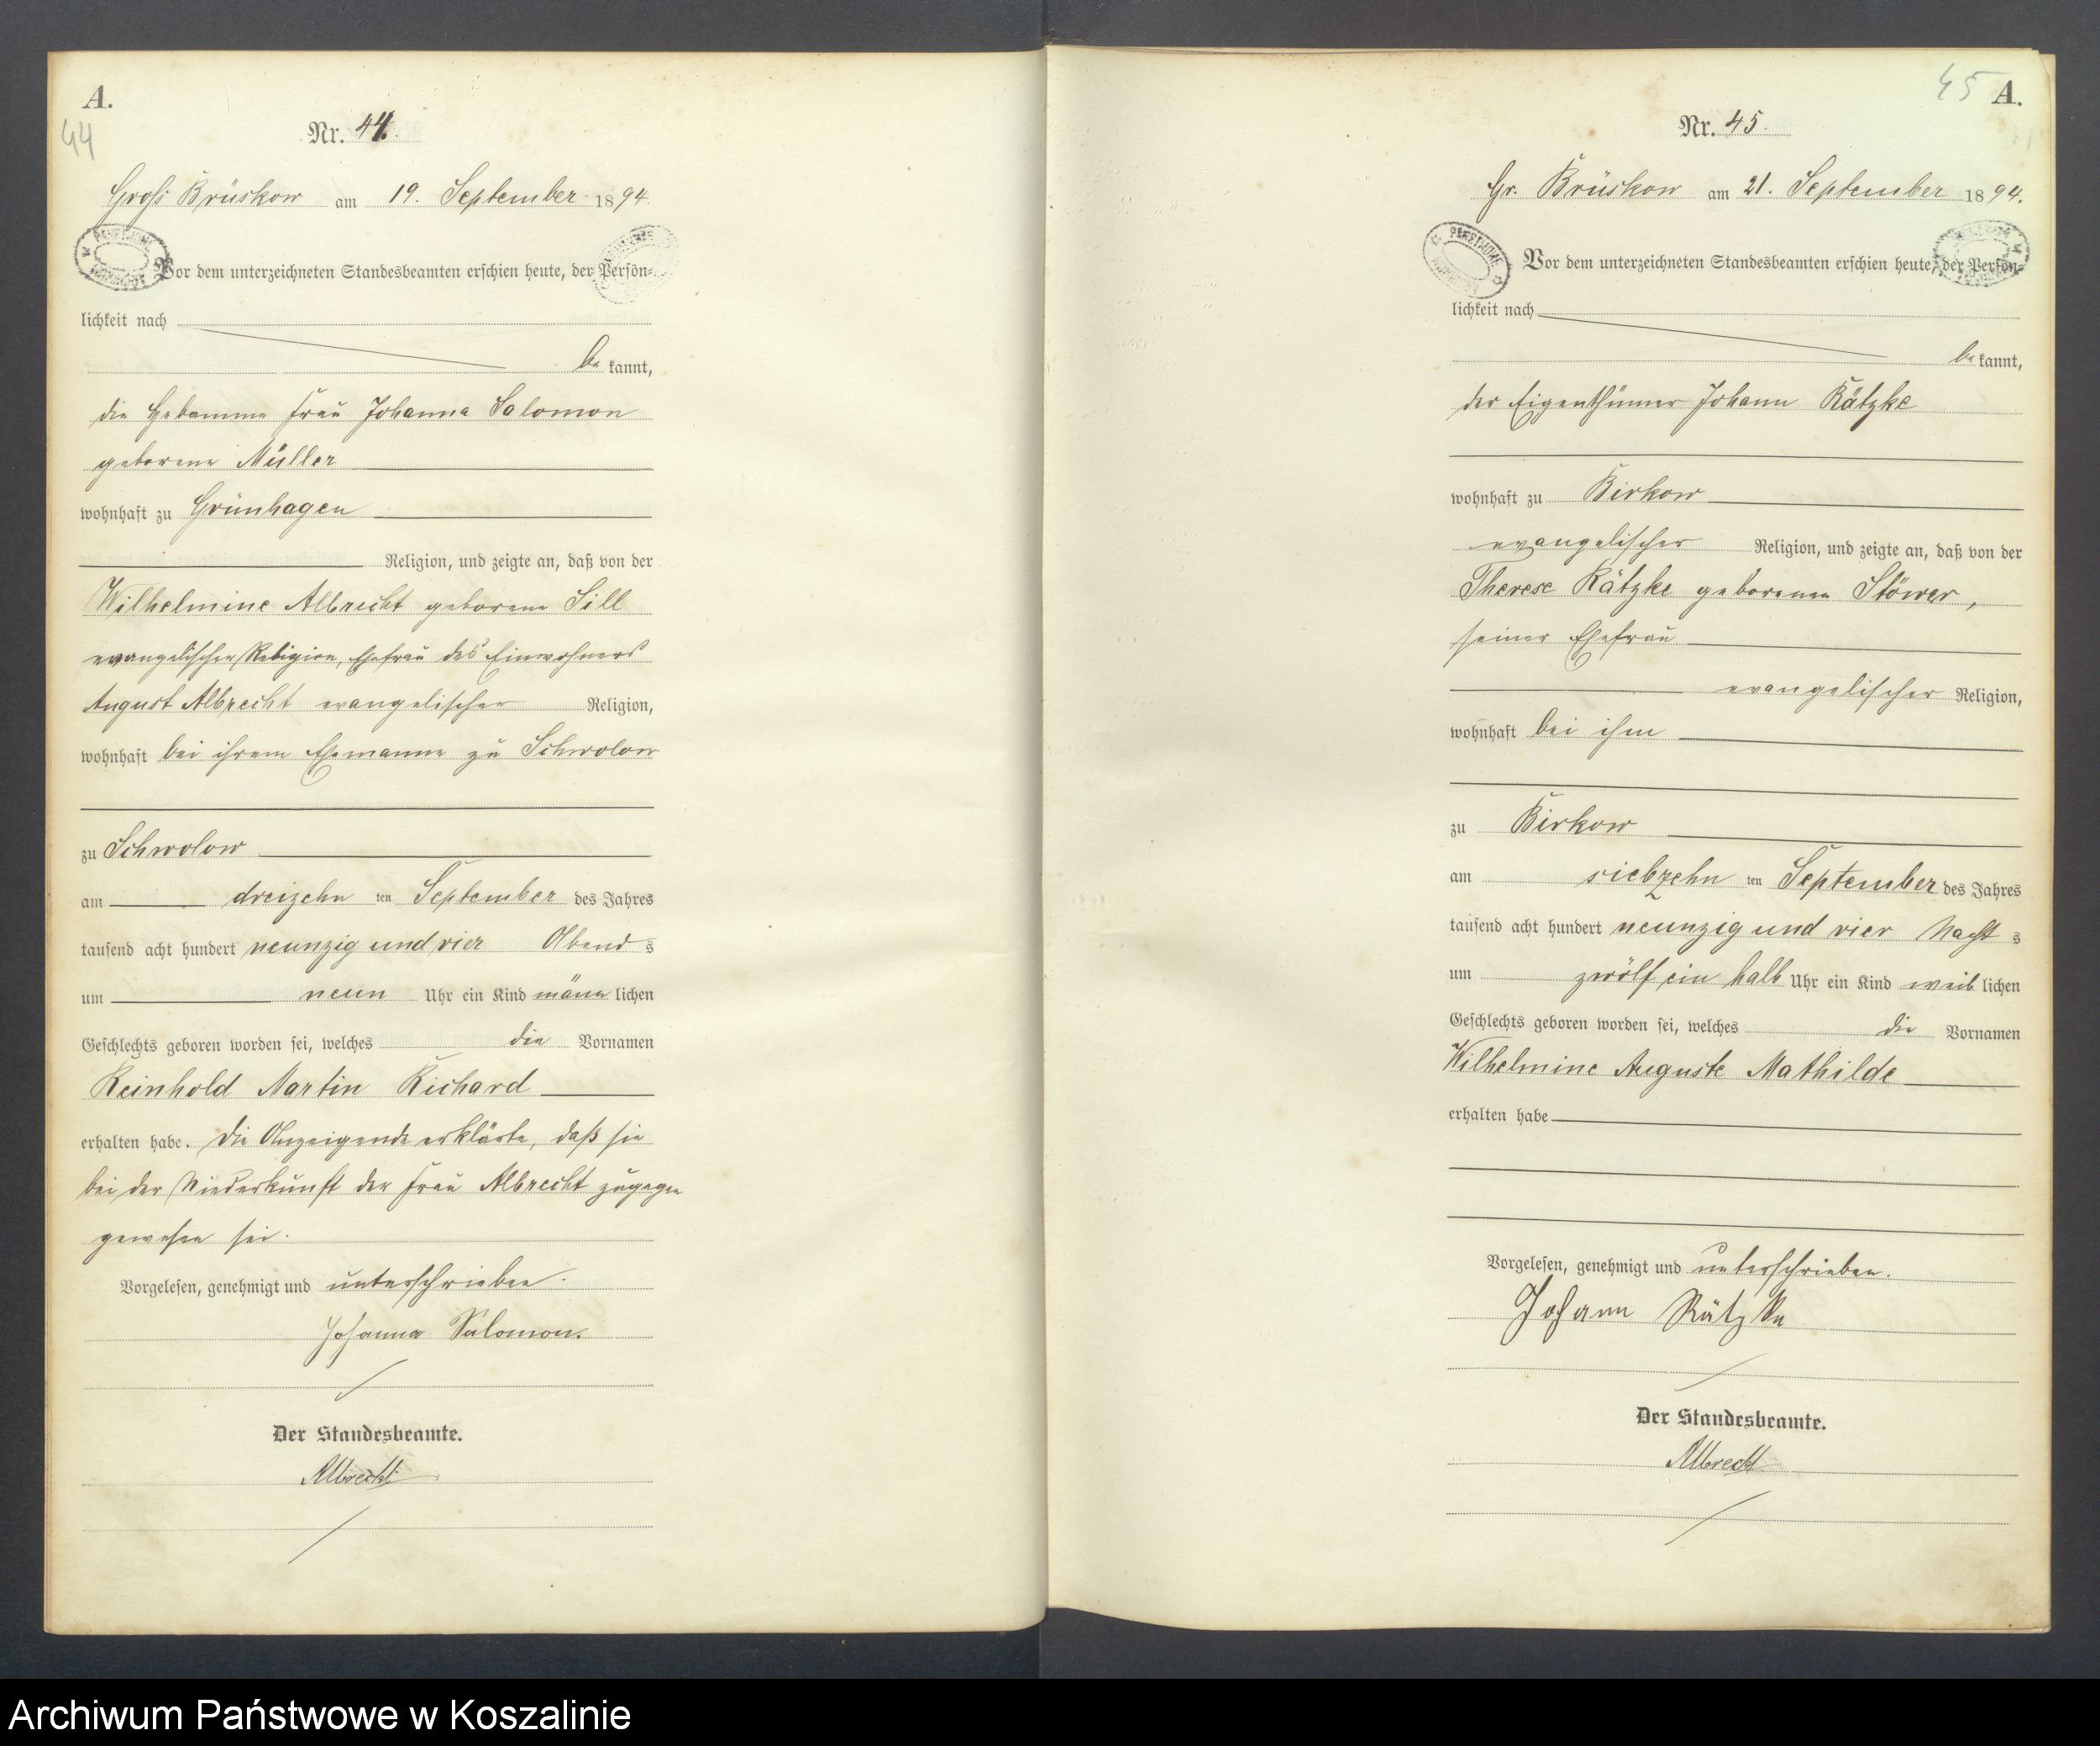 A.
44
Nr. 44.
Groß Brüskow am 19. September 1894.
Vor dem unterzeichneten Standesbeamten erschien heute, der Persön-
lichkeit nach
be kannt,
die Hebamme Frau Johanna Salomon
geborene Müller
wohnhaft zu Grünhagen
Religion, und zeigte an, daß von der
Wilhelmine Albrecht geborene Sill
evangelischer Religion, Ehefrau des Einwohners
August Albrecht evangelischer Religion,
wohnhaft bei ihrem Ehemanne zu Schwolow
zu Schwolow
am dreizehn ten September des Jahres
tausend acht hundert neunzig und vier Abend s
um neun Uhr ein Kind männ lichen
Geschlechts geboren worden sei, welches die Vornamen
Reinhold Martin Richard
erhalten habe. Die Anzeigende erklärte, daß sie
bei der Niederkunft der Frau Albrecht zugegen
gewesen sei.
Vorgelesen, genehmigt und unterschrieben.
Johanna Salomon.
Der Standesbeamte.
Albrecht
45 A.
Nr. 45.
Gr. Brüskow am 21. September 1894.
Vor dem unterzeichneten Standesbeamten erschien heute, der Persön-
lichkeit nach
be kannt,
der Eigenthümer Johann Rätzke
wohnhaft zu Birkow
evangelischer Religion, und zeigte an, daß von der
Therese Rätzke geborenen Stöwer,
seiner Ehefrau
evangelischer Religion,
wohnhaft bei ihm
zu Birkow
am siebzehn ten September des Jahres
tausend acht hundert neunzig und vier Nacht s
um zwölf ein halb Uhr ein Kind weib lichen
Geschlechts geboren worden sei, welches die Vornamen
Wilhelmine Auguste Mathilde
erhalten habe
Vorgelesen, genehmigt und unterschrieben.
Johann Rätzke
Der Standesbeamte.
Albrecht
Archiwum Państwowe w Koszalinie